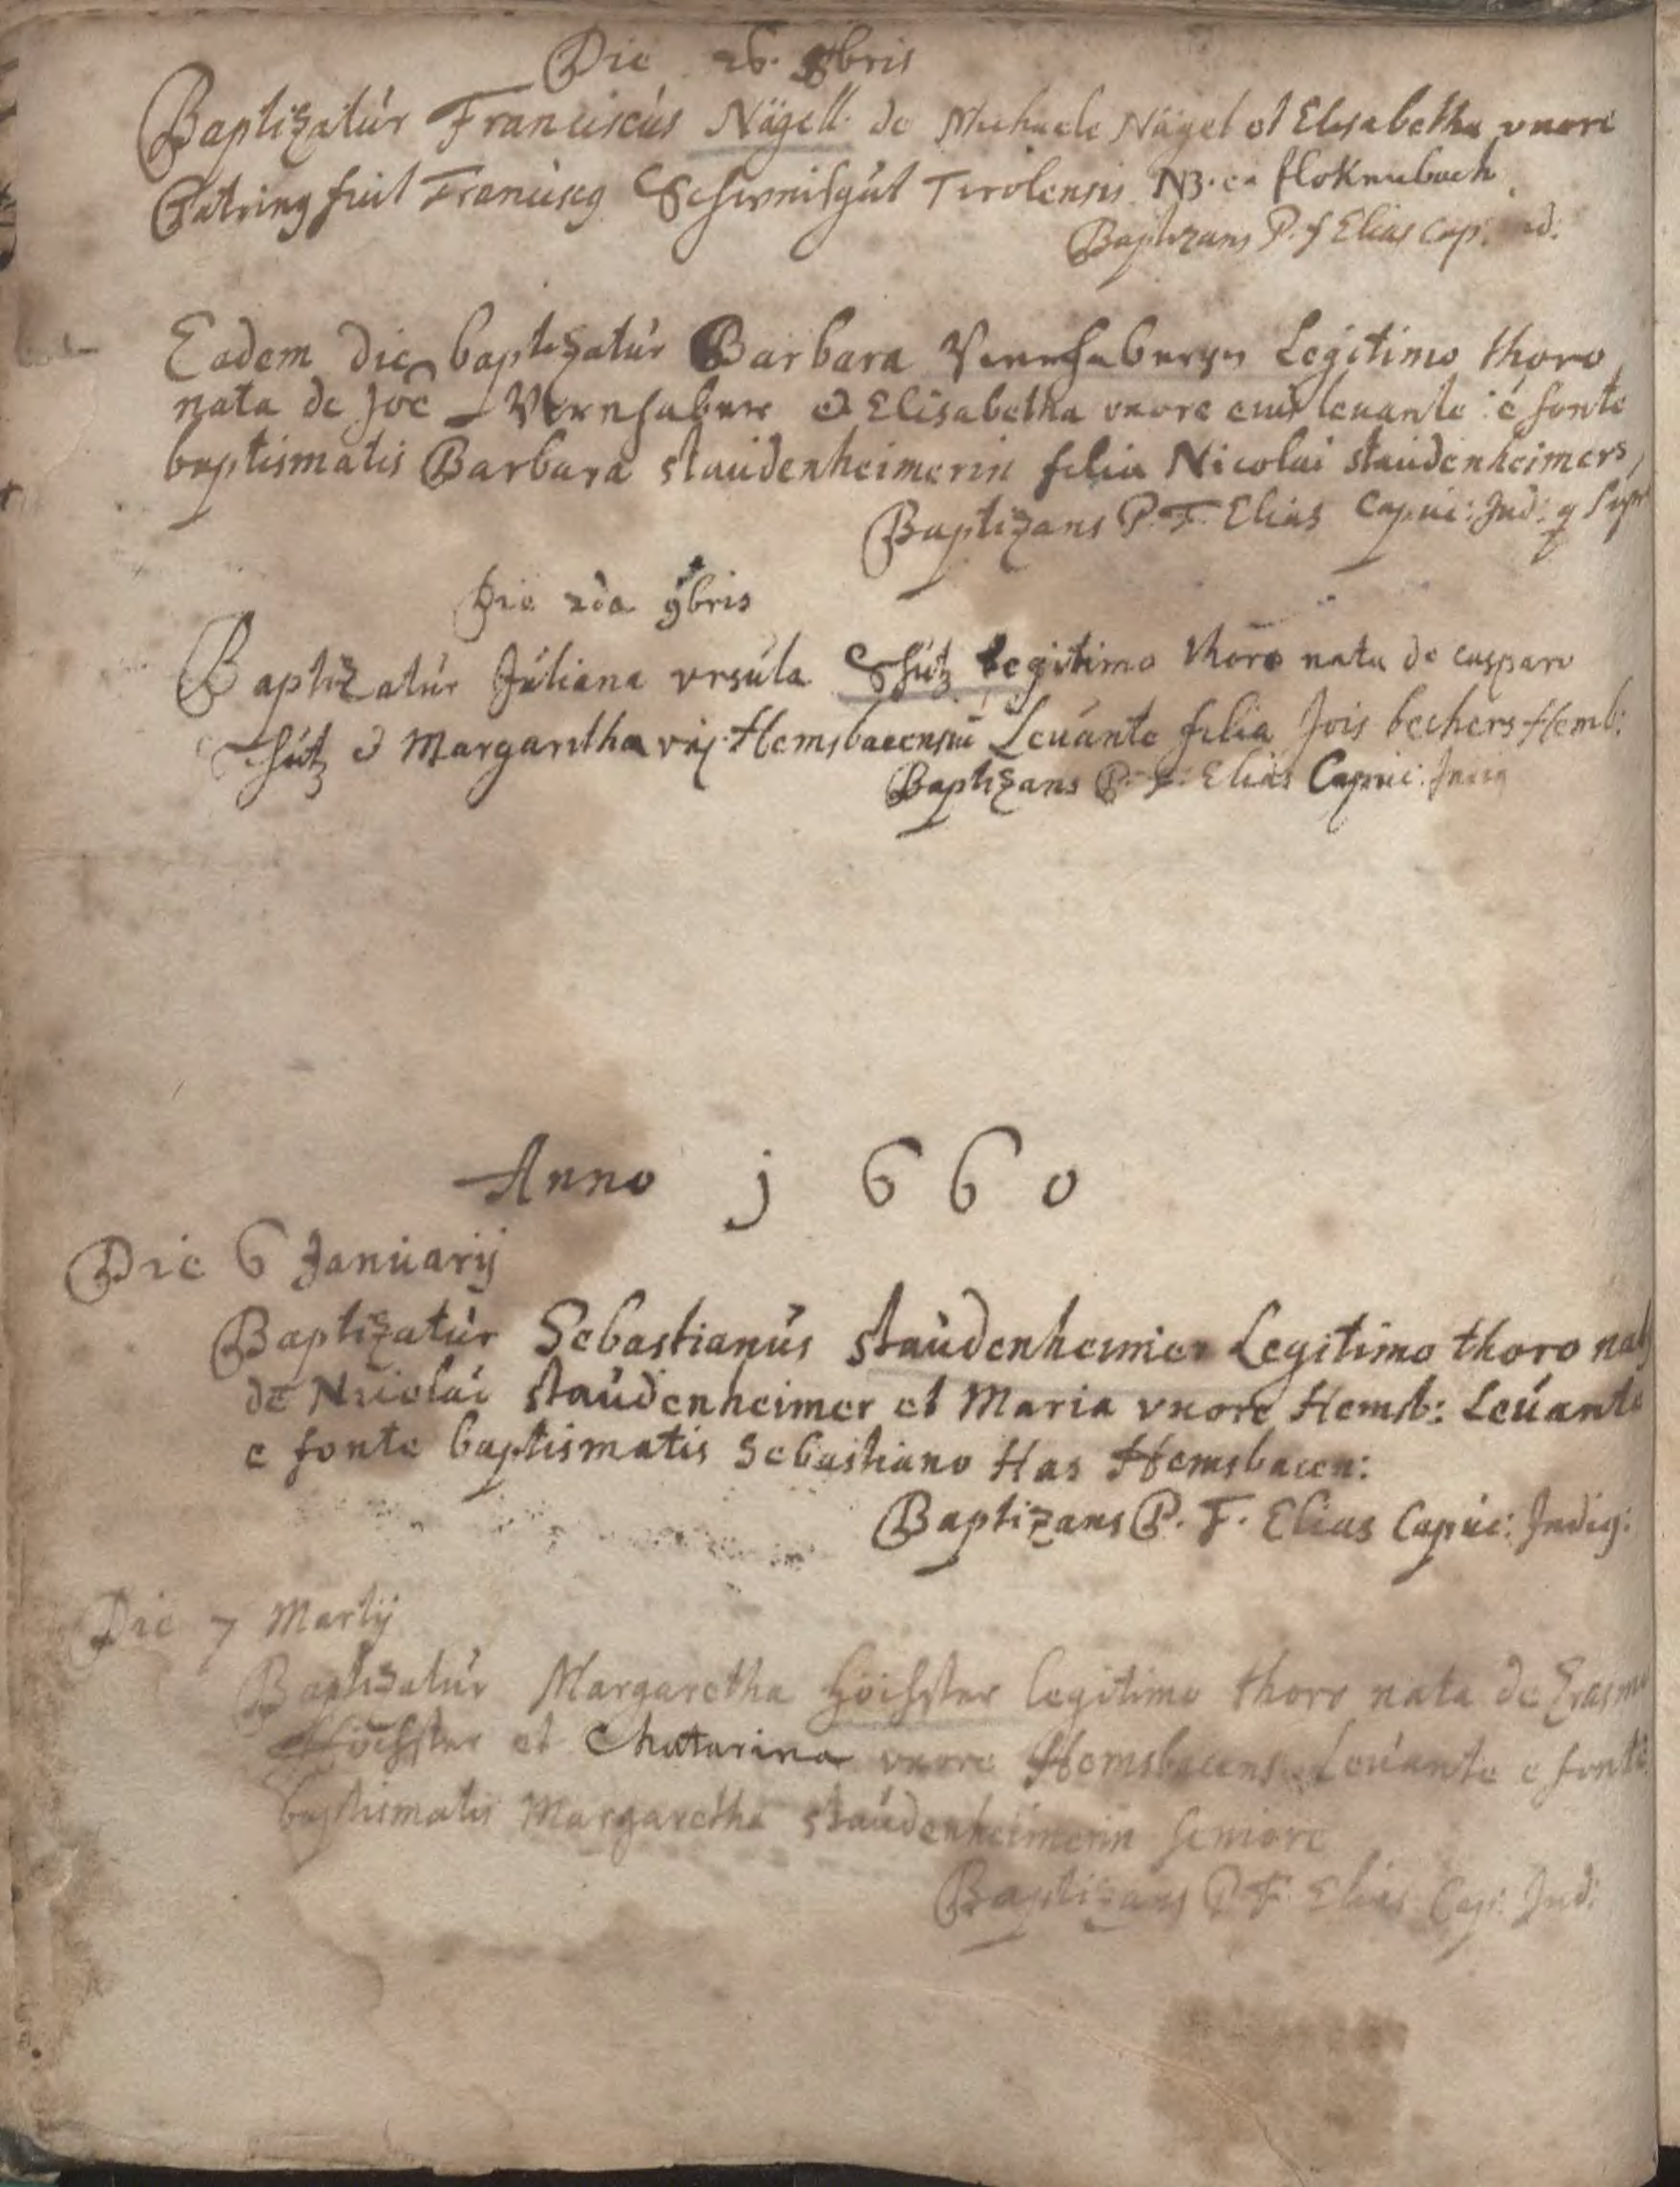 Die 26. 8bris
Baptizatúr Franciscús Nägell de Michaele Nägel et Elisabetha vxore
Patrinꝯ fuit Franciscꝯ Tirolensis NB. ex flokenbach
Baptizans P. f Elias Cap: ind:
Eadem die baptizatúr Barbara Legitimo thoro
nata de Joe Vernhaber et Elisabetha vxore eiuꝯ leuante é fonte
baptismatis Barbara staúdenheimerin filia Nicolai staúdenheimers
Baptizans P. F. Elias Capuc: Ind: q supr
Die 2da 9bris
Baptizatúr Júliana vrsúla Shútz legitimo thoro nata de casparo
Shútz et Margaretha vxs Hemsbacensiu Leúante filia Jois bechers Hemb:
Baptizans P. F. Elias Capuc: Indig
Anno 1660
Die 6 Janúarij
Baptizatúr Sebastianús staúdenheimer Legitimo thoro natꝯ
de Nicolai staúdenheimer et Maria vxore Hemsb: Leúante
e fonte baptismatis Sebastiano Has Hemsbacen:
Baptizans P. F. Elias Capúc: Indig:
Die 7 Martij
Baptizatúr Margaretha Höchster legitimo thoro nata de Erasmo
Höchster et Chatarina vxore Hemsbacens Leúante e fonte
baptismatis Margaretha staúdenheimerin seniore
Baptizans P. F. Elias Cap: Ind: